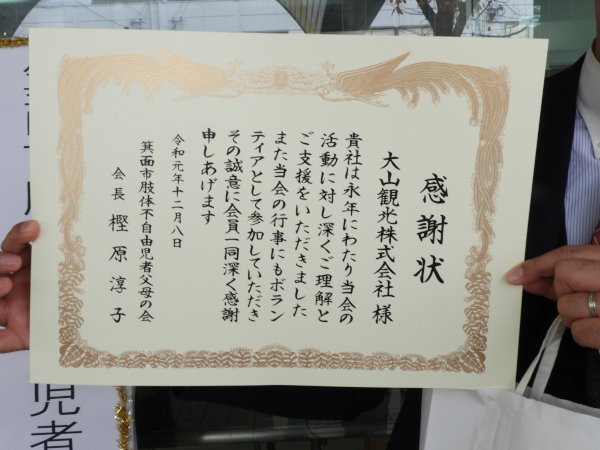 感謝状
大山観光株式会社 様
貴社は永年にわたり当会の
活動に対し深くご理解と
ご支援をいただきました
また当会の行事にもボラン
ティアとして参加していただき
その誠意に会員一同深く感謝
申しあげます
令和元年十二月八日
箕面市肢体不自由児者父母の会
会長 樫原淳子
児者